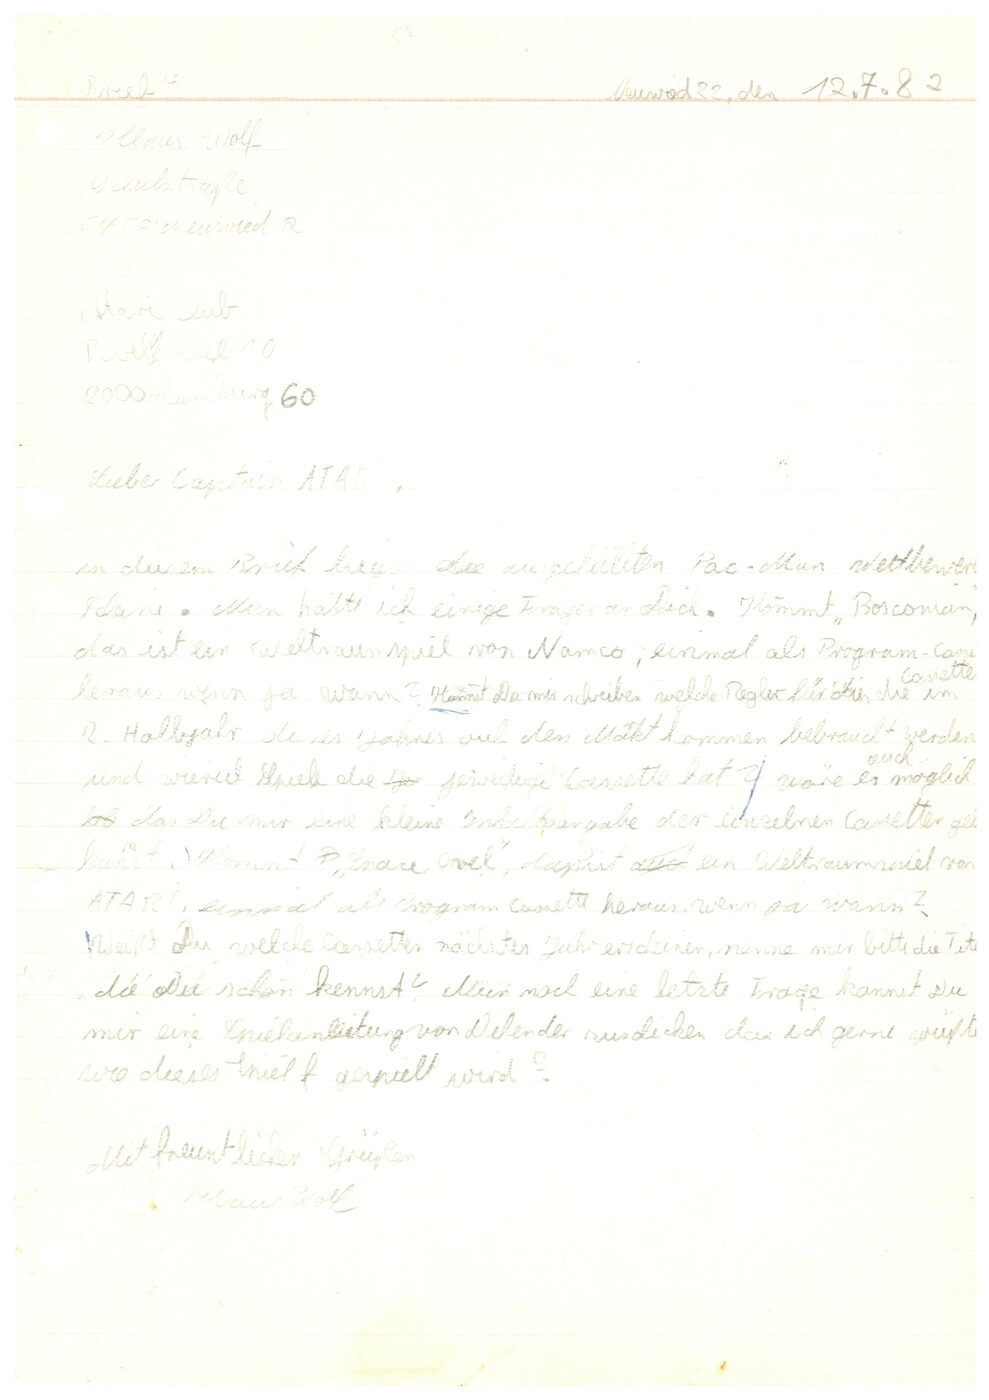 Brief
Neuwied 22, den 12.7.82
Klaus Wolf
Schulstraße
5450 Neuwied 2
Atari Club
10
2000 Hamburg 60
Lieber Captain ATARI,
in diesem Brief die ausgefüllten Pac-Man Wettbewer
Nun hätte ich einige Fragen an Dich. Kommt „Bosconian",
das ist ein Weltraumspiel von Namco, einmal als Program-Casse
heraus wenn ja wann? Kannst Du mir schreiben welche Regler für die Cassette die im
2. Halbjahr dieses Jahres auf den Makt kommen bebraucht werden
und wieviel Spiele die jeweilige Cassette hat? wäre es auch möglich
das Du mir eine kleine Inhaltsangabe der einzelnen Cassetten ge
kannst. Kommt „Space Duel", das ist ein Weltraumspiel von
ATARI, einmal als Program Cassette heraus, wenn ja wann?
Weißt Du welche Cassetten nächstes Jahr erscheinen, nenne mir bitte die Tite
die Du schon kennst? Nun noch eine letzte Frage kannst Du
mir eine Spielanleitung von Defender zuschicken das ich gerne wüßte
wie dieses Spiel gespielt wird?
Mit freuntlichen Grüßen
Klaus Wolf